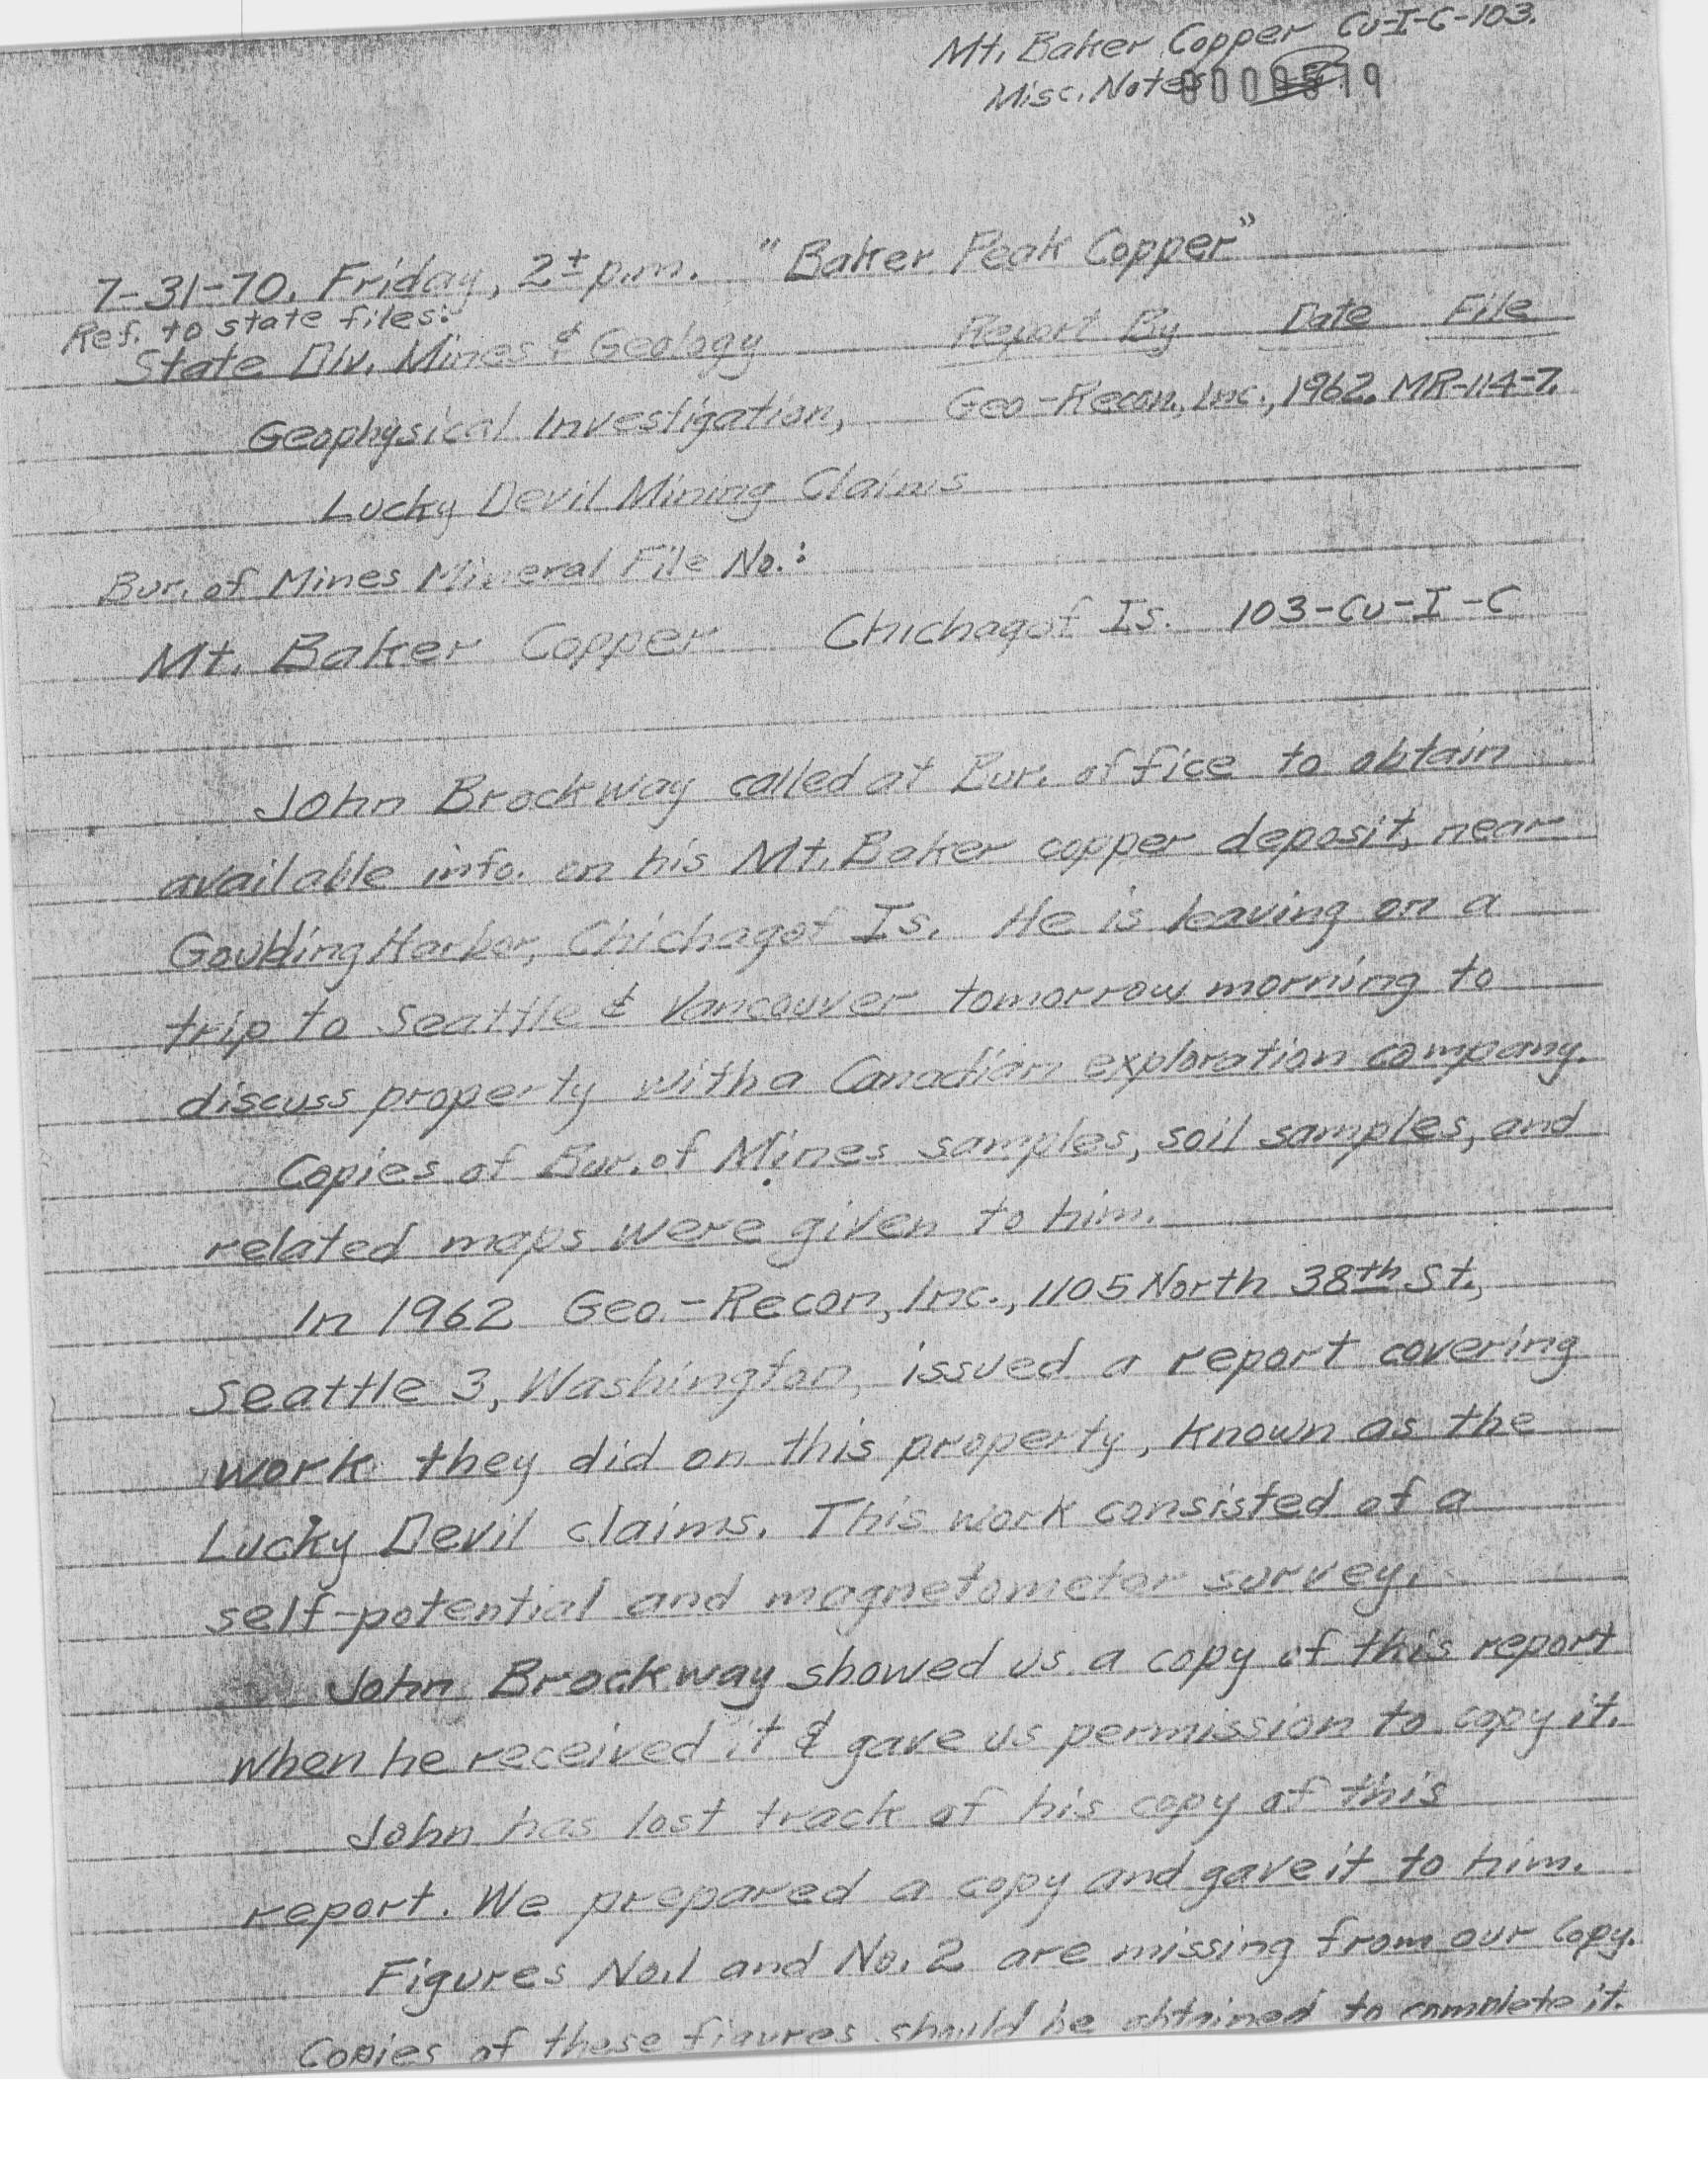 Mt. Baker Copper Cu-I-C-103.
Misc. Notes
7-31-70, Friday, 2± p.m. "Baker Peak Copper"
Ref. to state files:
State Div. Mines & Geology Report By Date File
Geophysical Investigation, Geo-Recon, Inc., 1962. MR-114-7.
Lucky Devil Mining Claims
Bur. of Mines Mineral File No.:
Mt. Baker Copper Chichagof Is. 103-Cu-I-C
John Brockway called at Bur. office to obtain
available info. on his Mt. Baker copper deposit, near
Goulding Harbor, Chichagof Is. He is leaving on a
trip to Seattle & Vancouver tomorrow morning to
discuss property with a Canadian exploration company.
Copies of Bur. of Mines samples, soil samples, and
related maps were given to him.
In 1962 Geo.-Recon, Inc., 1105 North 38th St.,
Seattle 3, Washington, issued a report covering
work they did on this property, known as the
Lucky Devil claims. This work consisted of a
self-potential and magnetometer survey.
John Brockway showed us a copy of this report
when he received it & gave us permission to copy it.
John has lost track of his copy of this
report. We prepared a copy and gave it to him.
Figures No.1 and No. 2 are missing from our copy.
Copies of these figures should be obtained to complete it.